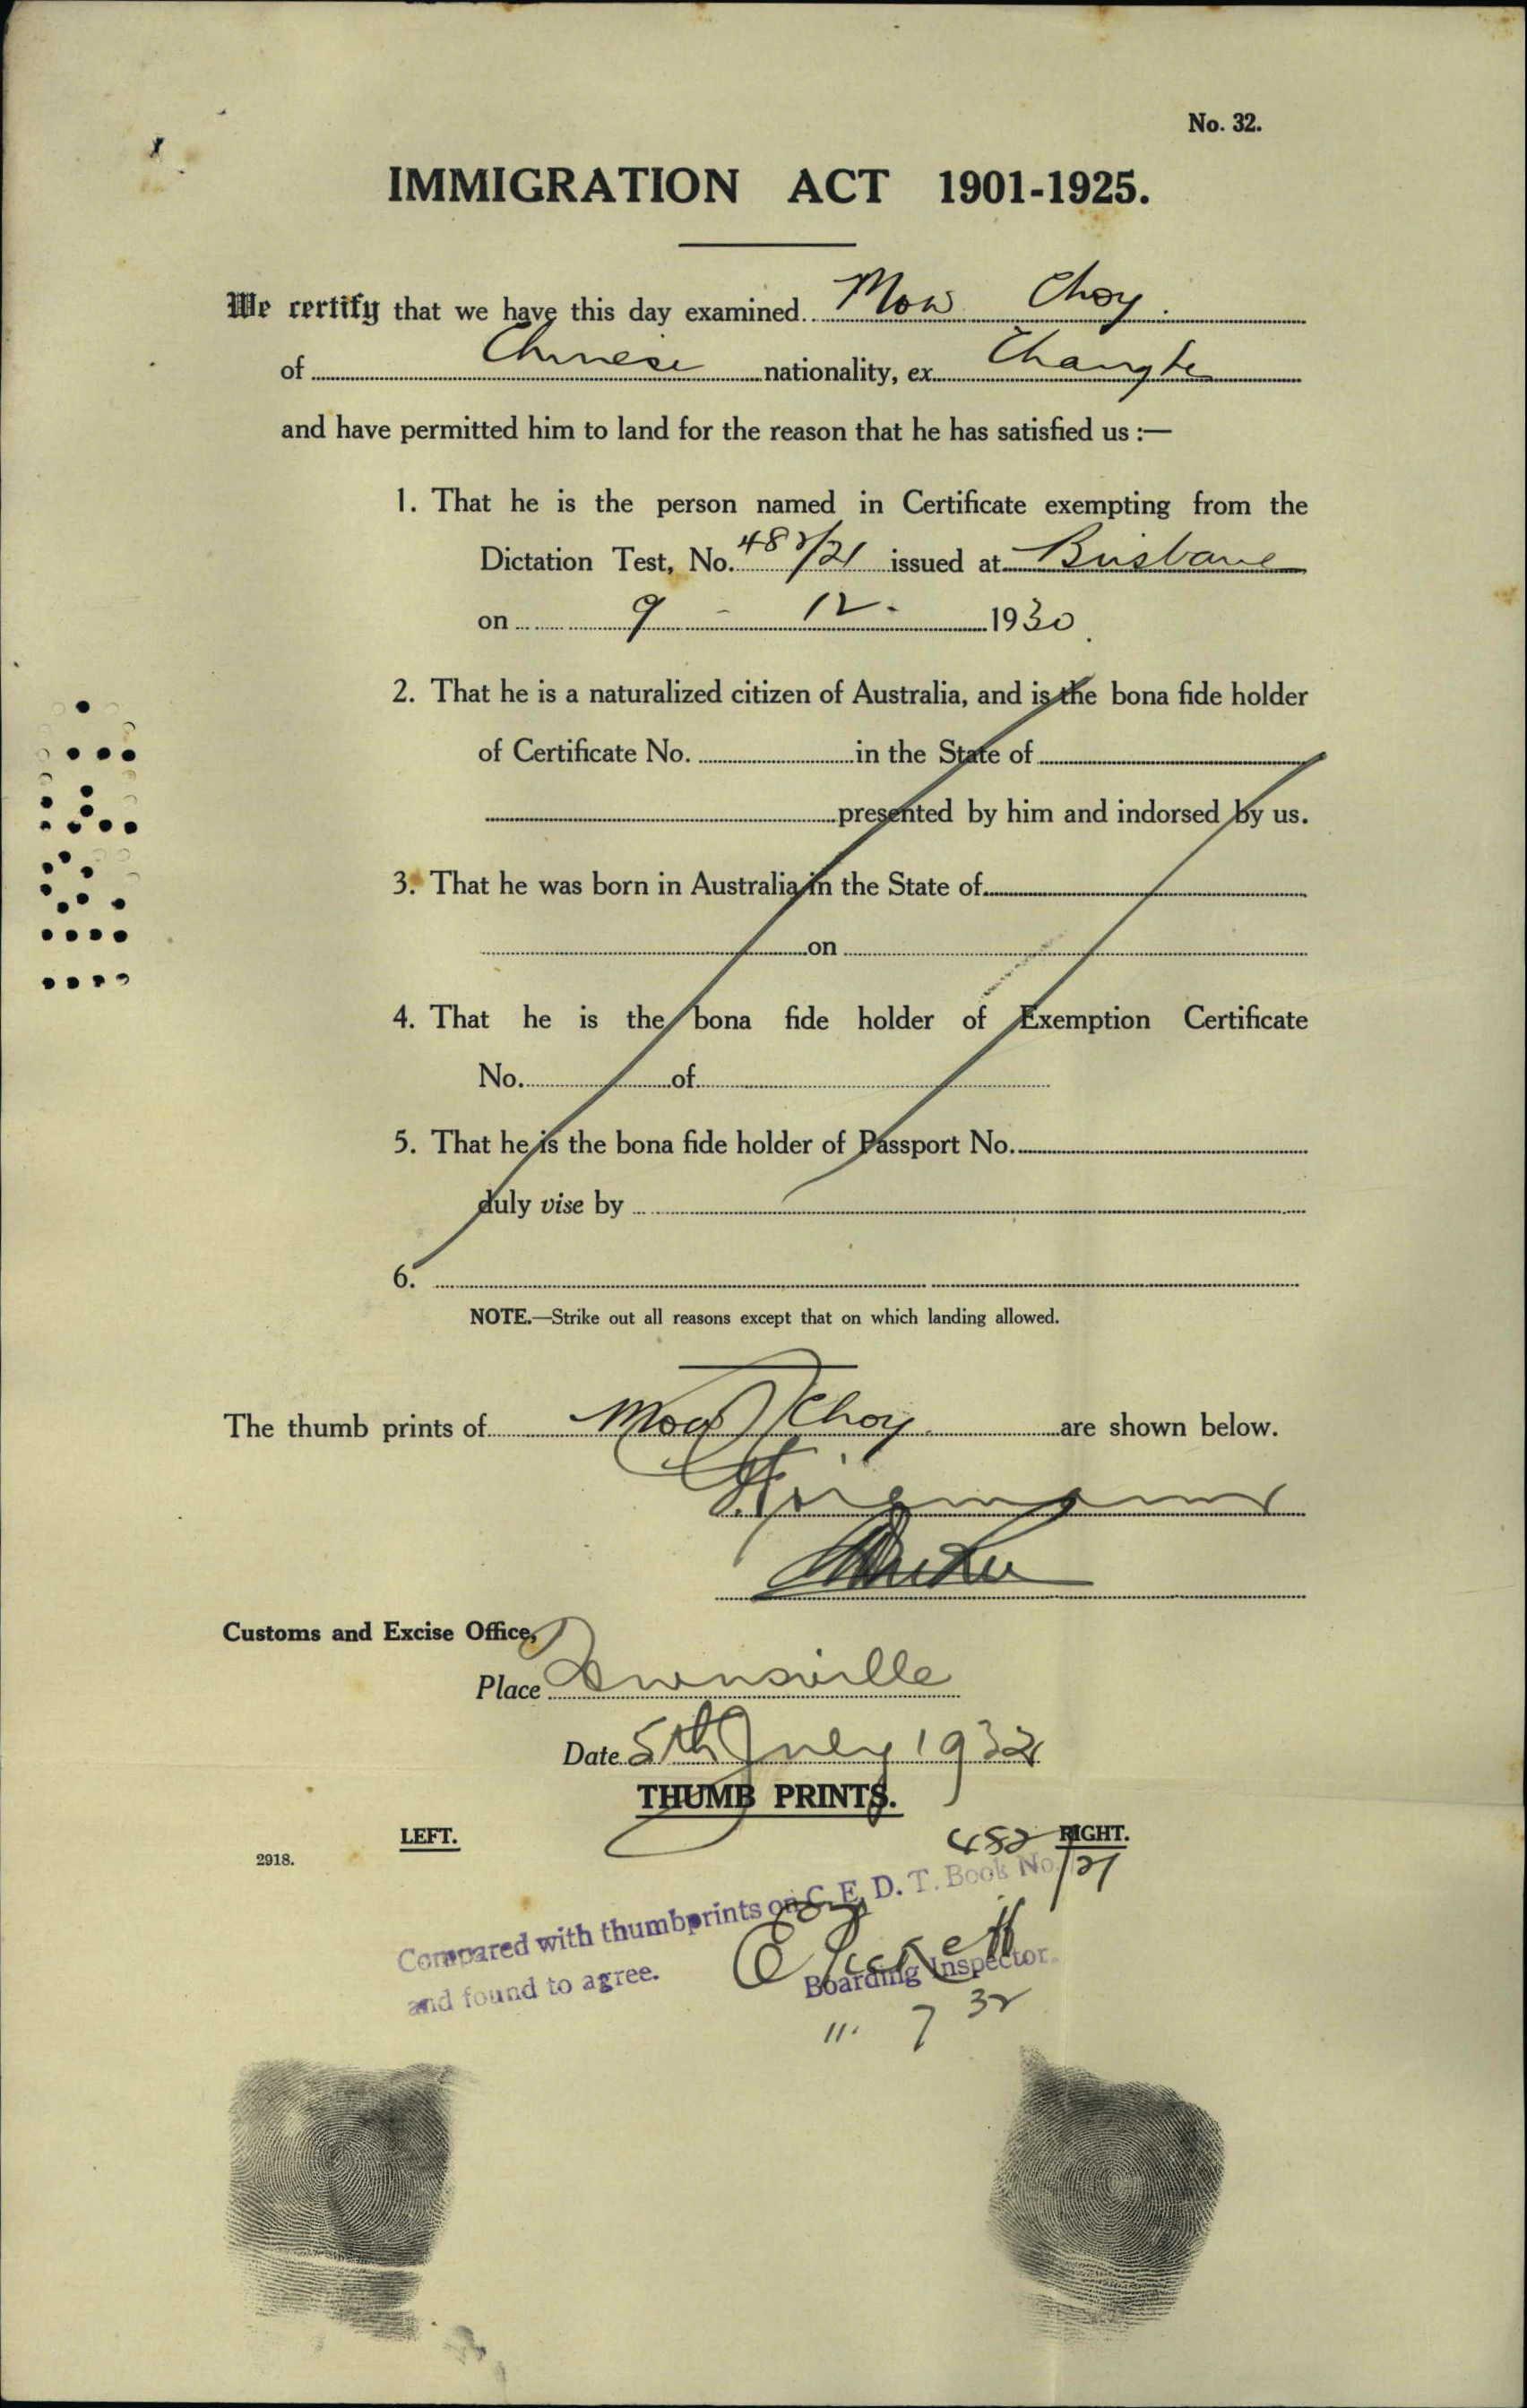 No. 32.
IMMIGRATION ACT 1901-1925.
We certify that we have this day examined Mow Choy.
of Chinese nationality, ex Changte
and have permitted him to land for the reason that he has satisfied us :—
1. That he is the person named in Certificate exempting from the
Dictation Test, No. 482/21 issued at Brisbane
on 9 - 12. 1930
2. That he is a naturalized citizen of Australia, and is the bona fide holder
of Certificate No. in the State of
presented by him and indorsed by us.
3. That he was born in Australia in the State of
on
4. That he is the bona fide holder of Exemption Certificate
No. of
5. That he is the bona fide holder of Passport No.
duly vise by
6.
NOTE.—Strike out all reasons except that on which landing allowed.
The thumb prints of Mow Choy. are shown below.
Customs and Excise Office,
Place Townsville
Date 5th July 1932
THUMB PRINTS.
LEFT. 482 RIGHT.
2918.
Compared with thumbprints on C. E. D. T. Book No. /21
and found to agree.
Boarding Inspector.
11. 7 32